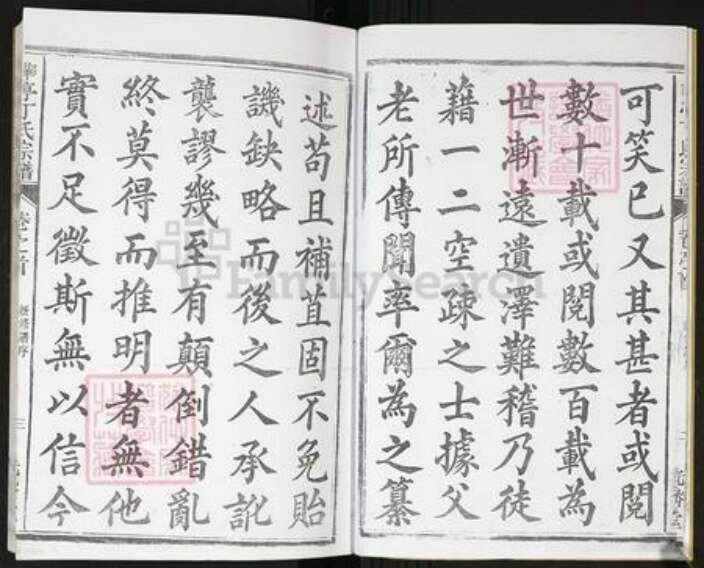 可笑已又其甚者或閱
數十載或閱數百載為
世漸遠遺澤難稽乃徒
藉一二空疎之士據父
老所傳聞率爾為之纂
述苟且補苴固不免貽
譏缺略而後之人承訛
襲謬幾至有顛倒錯亂
終莫得而推明者無他
實不足徵斯無以信今
丁氏宗譜
卷之首
新修譜序
三
FamilySearch